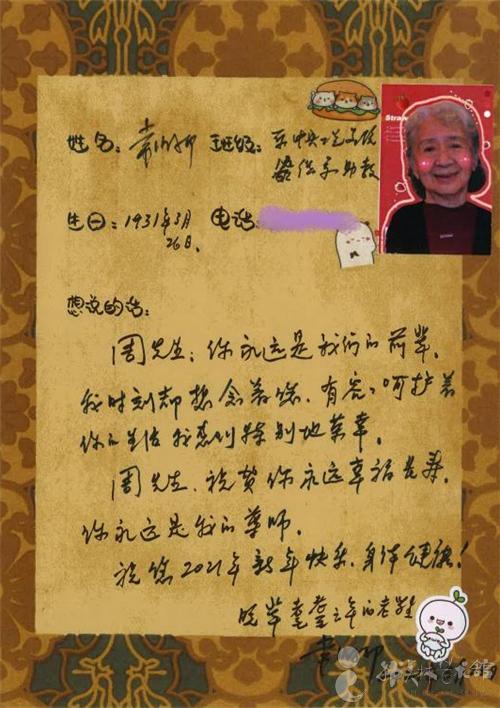 Straw
姓名：常沙娜 班级：原中央工艺美院
染织系助教
生日：1931年3月 电话：
26日、
想说的话：
周先生：你永远是我们的前辈，
我时刻都想念着您，有您呵护着
你的生活我感到特别地荣幸。
周先生，祝贺你永远幸福长寿，
你永远是我的尊师。
祝您2021年新年快乐，身体健康！
晚辈耄耋之年的老